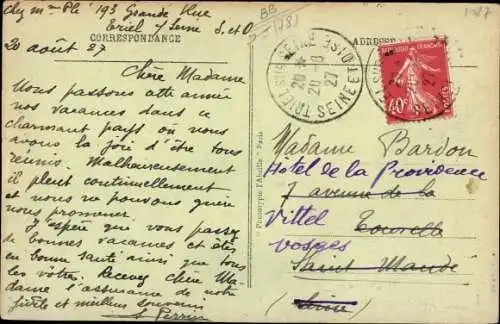 chez Mme Plé 193 Grande Rue
Triel s/ Seine S. et O.
20 août 27
CORRESPONDANCE
Chère Madame
Nous passons cette année
nos vacances dans ce
charmant pays où nous
avons la joie d'être tous
réunis. Malheureusement
il pleut continuellement
et nous ne pouvons guère
nous promener.
J'espère que vous passez
de bonnes vacances et êtes
en bonne santé ainsi que tous
les vôtres. Recevez chère Ma-
dame l'assurance de notre
et meilleur souvenir
S Perrin
"Phototypie l'Abeille" Paris
BB
1-27
ADRESSE
TRIEL SUR SEINE
SEINE ET OISE
20 - 8
27
40c
Madame Bardon
Hôtel de la Providence
7 avenue de la
Vittel Tourelle
Vosges
Saint Mandé
(Seine)